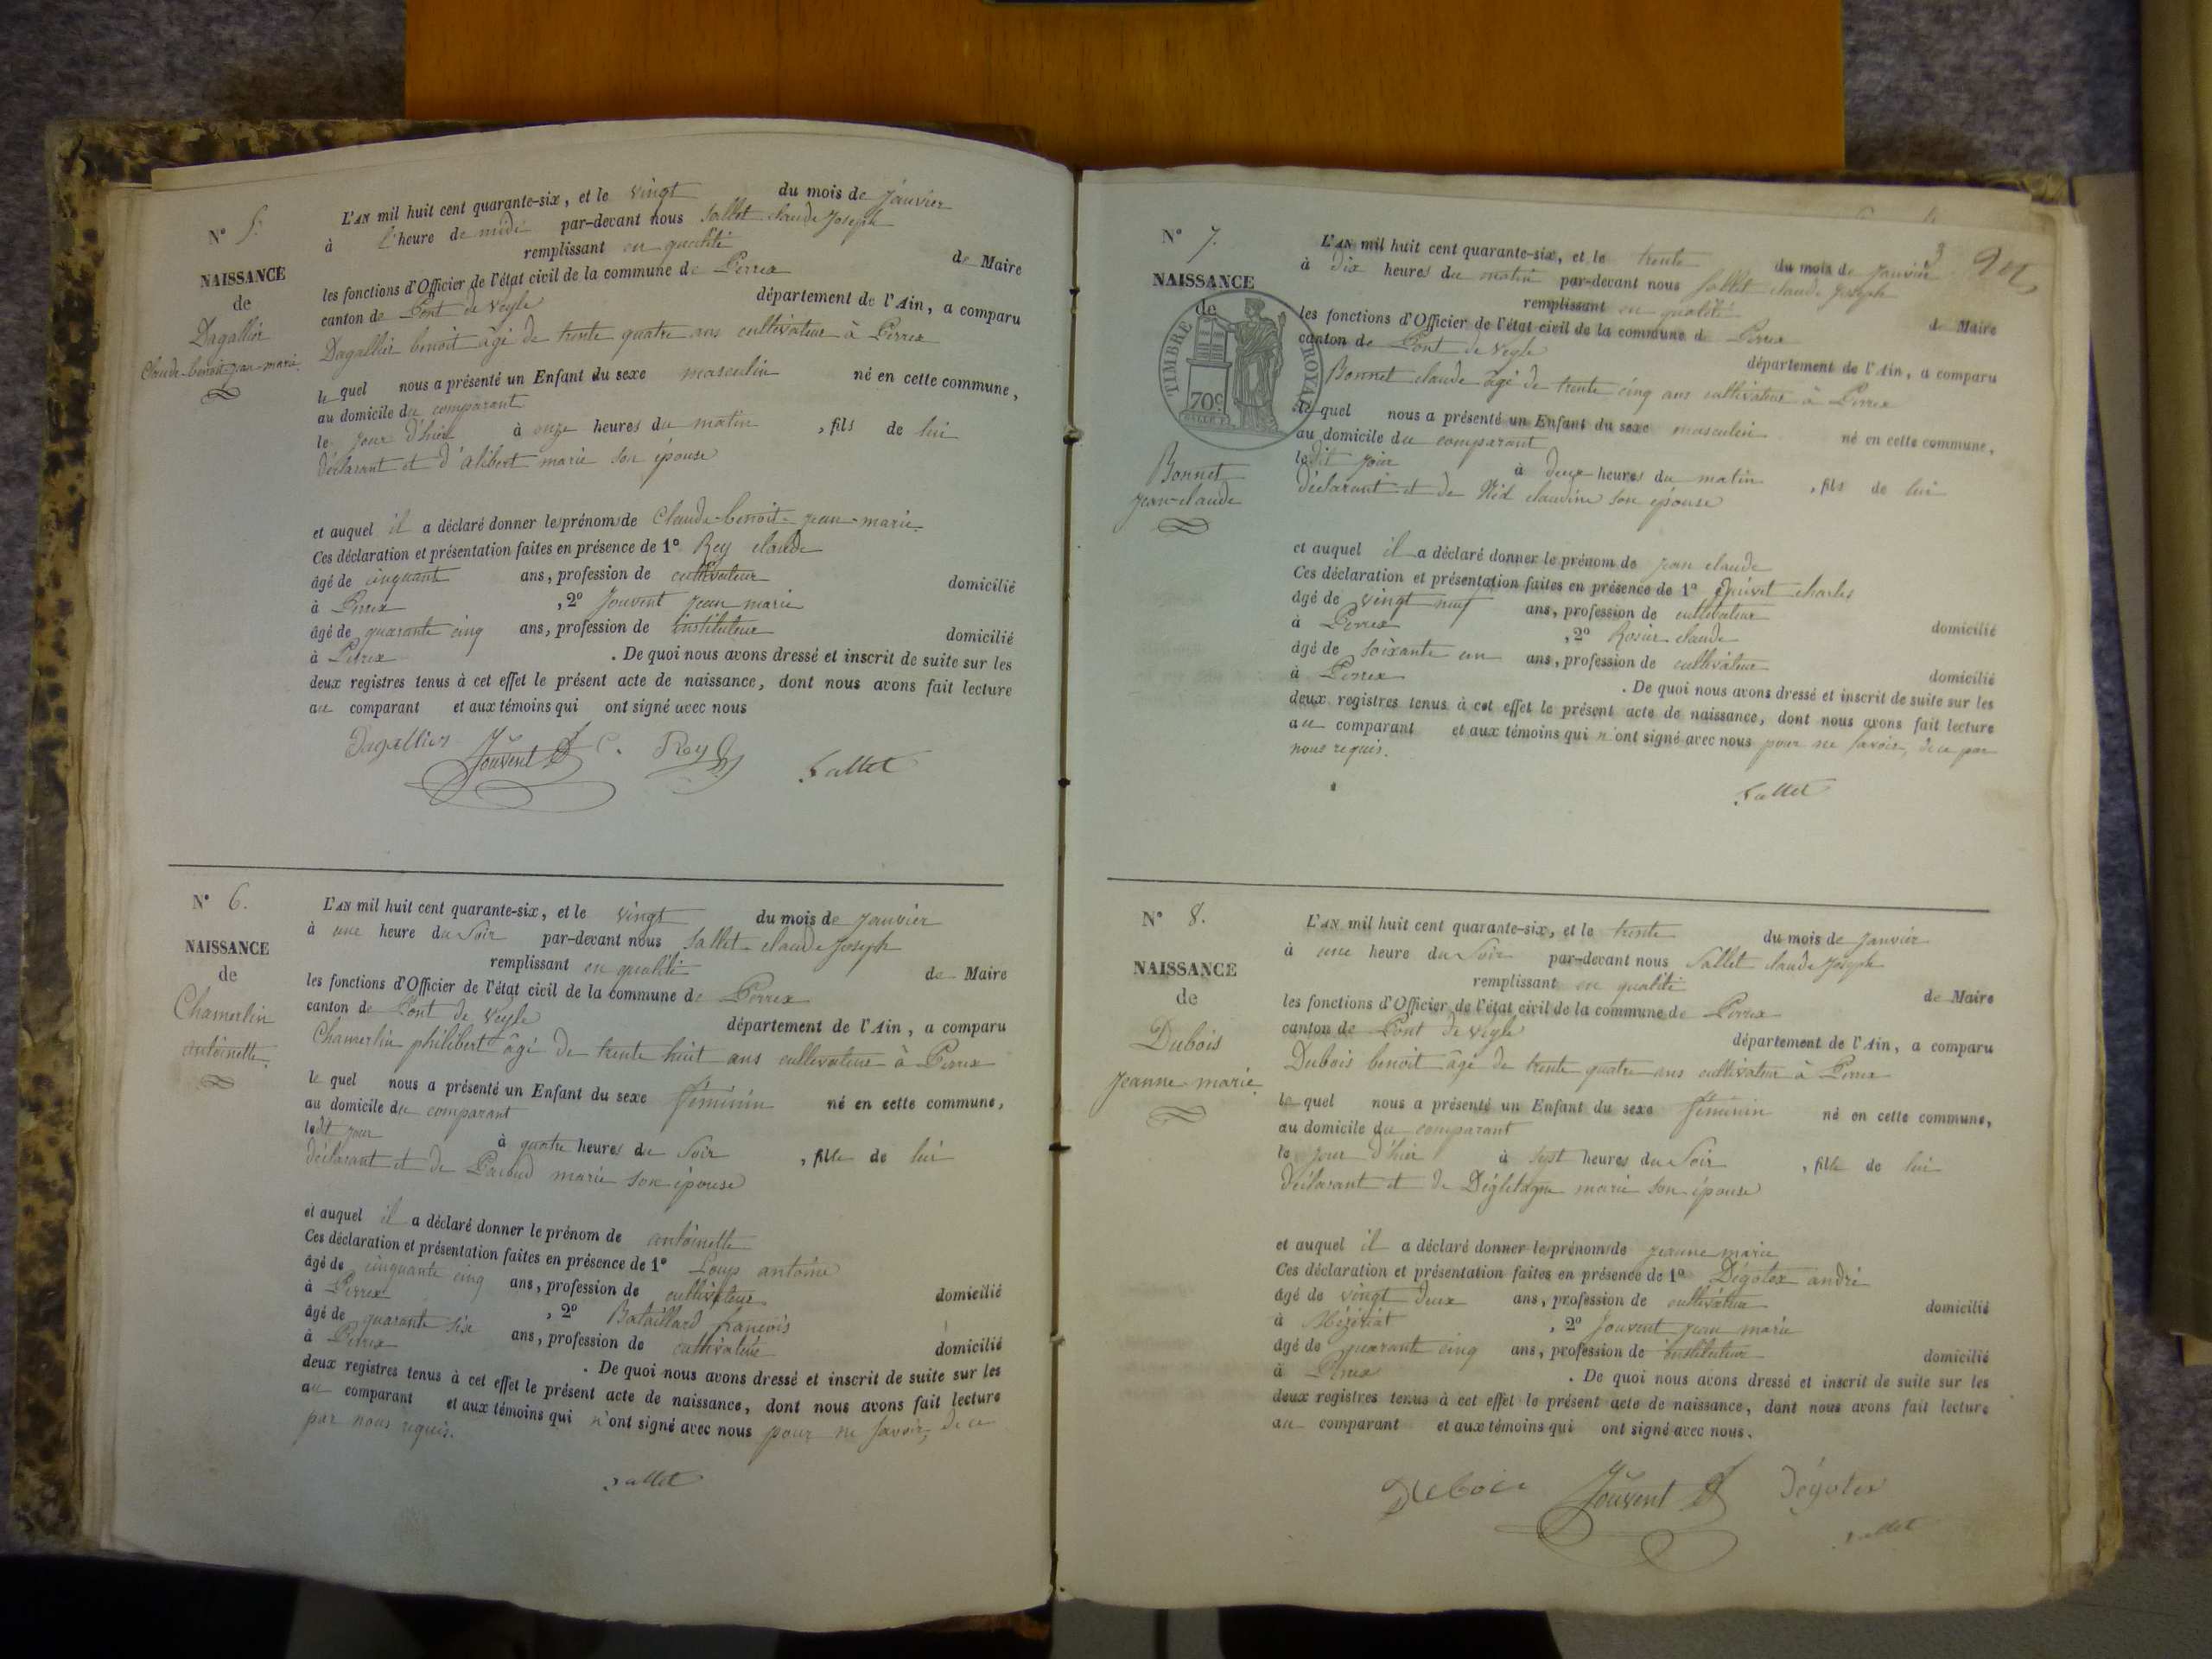 N° 5.
NAISSANCE
de
Dagallier
Claude-benoit-jean-marie
L'AN mil huit cent quarante-six, et le vingt du mois de janvier
à l'heure de midi par-devant nous Sallet claude Joseph
remplissant en qualité de Maire
les fonctions d'Officier de l'état civil de la commune de Perrex
canton de Pont de Veyle département de l'Ain, a comparu
Dagallier benoit âgé de trente quatre ans cultivateur à Perrex
le quel nous a présenté un Enfant du sexe masculin né en cette commune,
au domicile du comparant
le jour d'hier à onze heures du matin, fils de lui
déclarant et d'alibert marie son épouse
et auquel il a déclaré donner les prénoms de Claude-benoit-jean-marie.
Ces déclaration et présentation faites en présence de 1° Rey claude
âgé de cinquante ans, profession de cultivateur domicilié
à Perrex, 2° Jouvent jean marie
âgé de quarante cinq ans, profession de instituteur domicilié
à Perrex. De quoi nous avons dressé et inscrit de suite sur les
deux registres tenus à cet effet le présent acte de naissance, dont nous avons fait lecture
au comparant et aux témoins qui ont signé avec nous
Dagallier Jouvent C. Rey Sallet
N° 6.
NAISSANCE
de
Chamerlin
antoinette.
L'AN mil huit cent quarante-six, et le vingt du mois de janvier
à une heure du Soir par-devant nous Sallet claude Joseph
remplissant en qualité de Maire
les fonctions d'Officier de l'état civil de la commune de Perrex
canton de Pont de Veyle département de l'Ain, a comparu
Chamerlin philibert âgé de trente huit ans cultivateur à Perrex
le quel nous a présenté un Enfant du sexe féminin né en cette commune,
au domicile du comparant
ledit jour à quatre heures du Soir, fille de lui
déclarant et de marie son épouse
et auquel il a déclaré donner le prénom de antoinette
Ces déclaration et présentation faites en présence de 1° Loup antoine
âgé de cinquante cinq ans, profession de cultivateur domicilié
à Perrex, 2° Bataillard francois
âgé de quarante six ans, profession de cultivateur domicilié
à Perrex. De quoi nous avons dressé et inscrit de suite sur les
deux registres tenus à cet effet le présent acte de naissance, dont nous avons fait lecture
au comparant et aux témoins qui n'ont signé avec nous pour ne savoir, de ce
par nous requis.
Sallet
3
N° 7.
NAISSANCE
de
TIMBRE ROYAL
70c
Bonnet
jean-claude
L'AN mil huit cent quarante-six, et le trente du mois de janvier
à dix heures du matin par-devant nous Sallet claude Joseph
remplissant en qualité de Maire
les fonctions d'Officier de l'état civil de la commune de Perrex
canton de Pont de Veyle département de l'Ain, a comparu
Bonnet claude âgé de trente cinq ans cultivateur à Perrex
le quel nous a présenté un Enfant du sexe masculin né en cette commune,
au domicile du comparant
ledit jour à deux heures du matin, fils de lui
déclarant et de Nid claudine son épouse
et auquel il a déclaré donner le prénom de jean claude
Ces déclaration et présentation faites en présence de 1° charles
âgé de vingt neuf ans, profession de cultivateur domicilié
à Perrex, 2° Rosier claude
âgé de soixante un ans, profession de cultivateur domicilié
à Perrex. De quoi nous avons dressé et inscrit de suite sur les
deux registres tenus à cet effet le présent acte de naissance, dont nous avons fait lecture
au comparant et aux témoins qui n'ont signé avec nous pour ne savoir, de ce par
nous requis.
Sallet
N° 8.
NAISSANCE
de
Dubois
Jeanne-marie.
L'AN mil huit cent quarante-six, et le trente du mois de janvier
à une heure du Soir par-devant nous Sallet claude Joseph
remplissant en qualité de Maire
les fonctions d'Officier de l'état civil de la commune de Perrex
canton de Pont de Veyle département de l'Ain, a comparu
Dubois benoit âgé de trente quatre ans cultivateur à Perrex
le quel nous a présenté un Enfant du sexe féminin né en cette commune,
au domicile du comparant
le jour d'hier à sept heures du Soir, fille de lui
déclarant et de marie son épouse
et auquel il a déclaré donner les prénoms de jeanne marie
Ces déclaration et présentation faites en présence de 1° Dégotex andré
âgé de vingt deux ans, profession de cultivateur domicilié
à Mézériat, 2° Jouvent jean marie
âgé de quarante cinq ans, profession de instituteur domicilié
à Perrex. De quoi nous avons dressé et inscrit de suite sur les
deux registres tenus à cet effet le présent acte de naissance, dont nous avons fait lecture
au comparant et aux témoins qui ont signé avec nous.
Dubois Jouvent Dégotex
Sallet